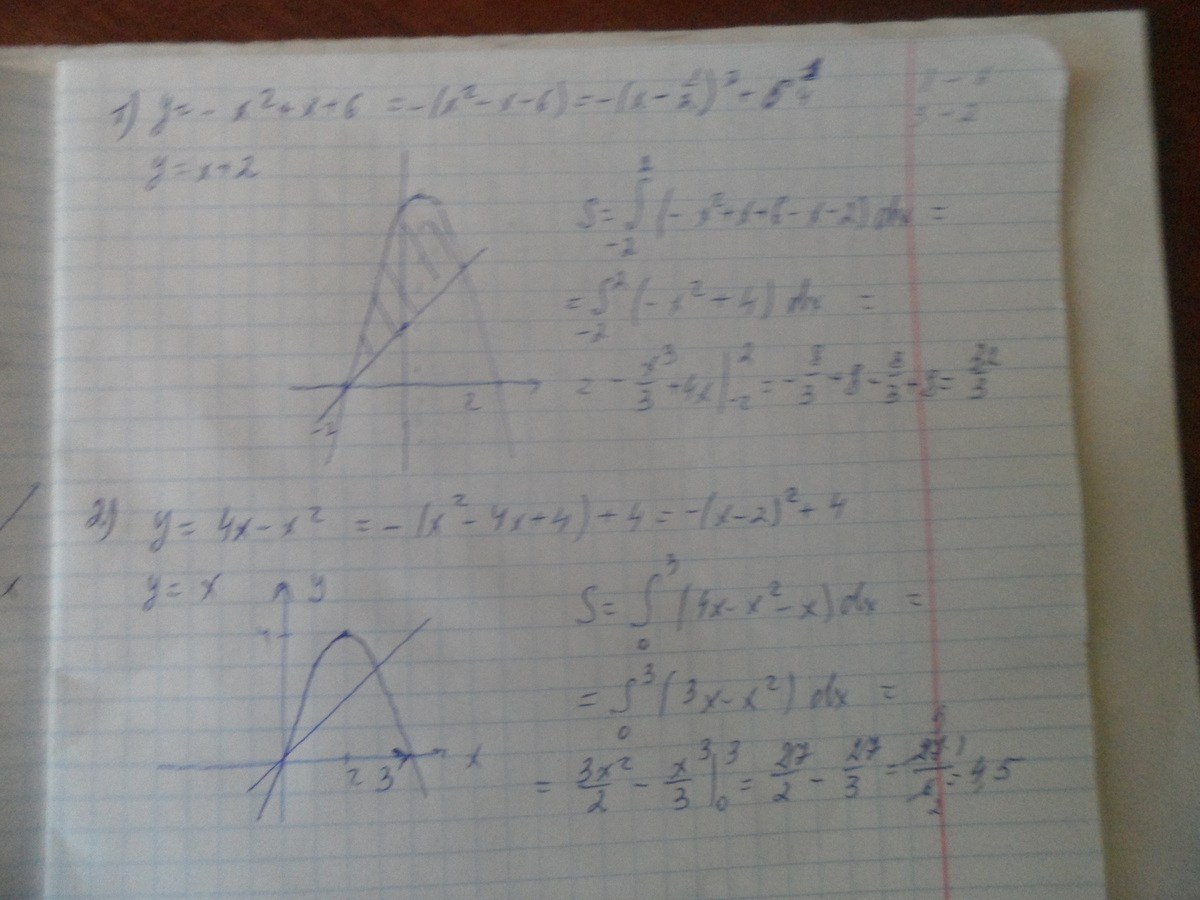 1) y = - x² + x + 6 = -(x² - x - 6) = -(x - 1/2)² +
y = x + 2
S = ∫_{-2}^{2} (- x² + x + 6 - x - 2) dx =
= ∫_{-2}^{2} (- x² + 4) dx =
= - x³/3 + 4x |_{-2}^{2} = - 8/3 + 8 - 8/3 + 8 = 32/3
-2 2
2) y = 4x - x² = -(x² - 4x + 4) + 4 = -(x - 2)² + 4
y = x
y
S = ∫_{0}^{3} (4x - x² - x) dx =
= ∫_{0}^{3} (3x - x²) dx =
2 3 x
= 3x²/2 - x³/3 |_{0}^{3} = 27/2 - 27/3 = = 4,5
x